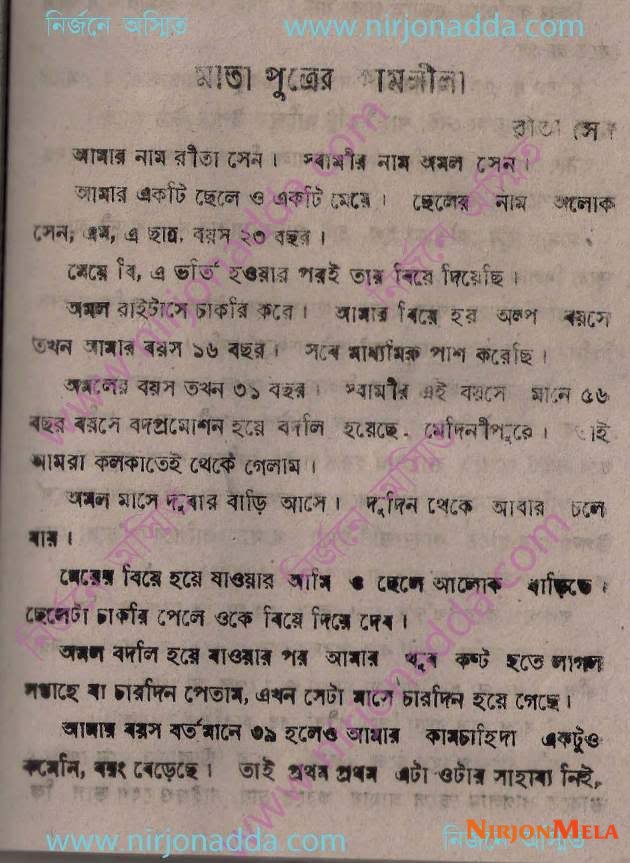 নির্জনে অস্মিত www.nirjonadda.com
মাতা পুত্রের কামলীলা
রীতা সেন
আমার নাম রীতা সেন। স্বামীর নাম অমল সেন।
আমার একটি ছেলে ও একটি মেয়ে। ছেলের নাম আলোক
সেন, এম, এ ছাত্র, বয়স ২৩ বছর।
মেয়ে বি, এ ভর্তি হওয়ার পরই তার বিয়ে দিয়েছি।
অমল রাইটার্সে চাকরি করে। আমার বিয়ে হয় অল্প বয়সে
তখন আমার বয়স ১৬ বছর। সবে মাধ্যমিক পাশ করেছি।
অমলের বয়স তখন ৩১ বছর। স্বামীর এই বয়সে মানে ৫৬
বছর বয়সে বদপ্রমোশন হয়ে বদলি হয়েছে, মেদিনীপুরে। তাই
আমরা কলকাতেই থেকে গেলাম।
অমল মাসে দুবার বাড়ি আসে। দুদিন থেকে আবার চলে
যায়।
মেয়ের বিয়ে হয়ে যাওয়ার আমি ও ছেলে আলোক বাড়িতে।
ছেলেটা চাকরি পেলে ওকে বিয়ে দিয়ে দেব।
অমল বদলি হয়ে যাওয়ার পর আমার খুব কষ্ট হতে লাগল
সপ্তাহে যা চারদিন পেতাম, এখন সেটা মাসে চারদিন হয়ে গেছে।
আমার বয়স বর্তমানে ৩৯ হলেও আমার কামচাহিদা একটুও
কমেনি, বরং বেড়েছে। তাই প্রথম প্রথম এটা ওটার সাহায্য নিই,
www.nirjonadda.com নির্জনে অস্মিত
NIRJONMELA